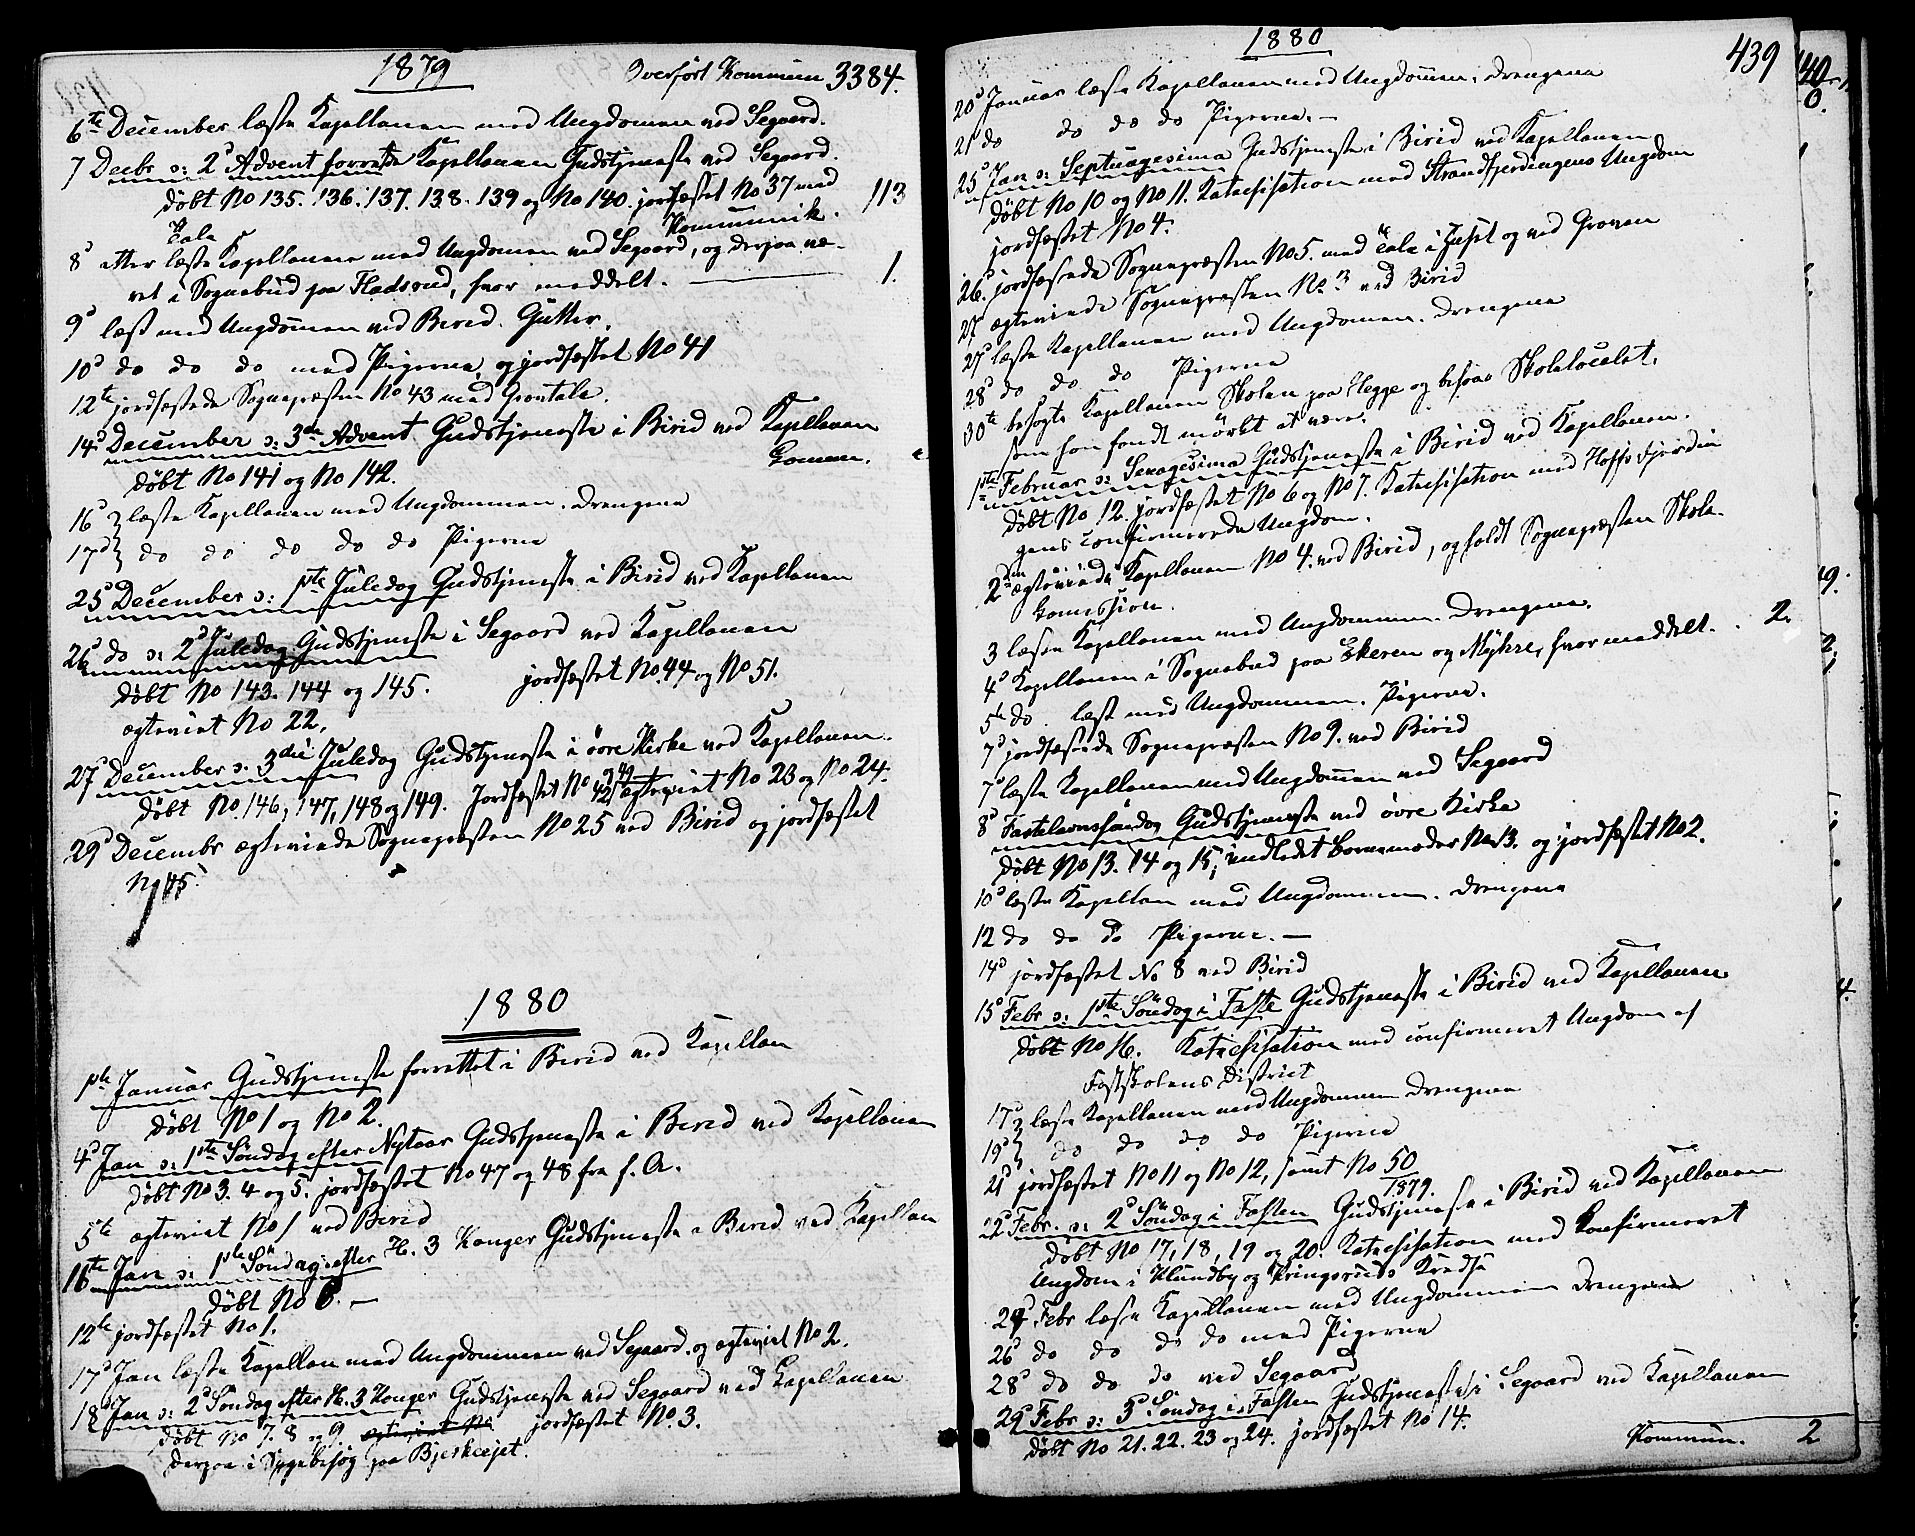 1879
Overført Kommun 3384.
6te December læste Kapellanen med Ungdomen ved Segaard.
7 Decbr ɔ: 2d Advent forrettede Kapellanen Gudstjeneste ved Segaard.
døbt No 135. 136. 137. 138. 139 og No 140. jordfæstet No 37 med
Tale
Kommunik. 113
8d atter læste Kapellanen med Ungdomen ved Segaard, og derpaa væ-
ret i Sognebud paa Fladsrud, hvor meddelt. 1.
9d læst med Ungdommen ved Birid. Gutter.
10d do do do med Pigerne, og jordfæstet No 41
12te jordfæstede Sognepræsten No 43 med Gravtale.
14d December ɔ: 3die Advent Gudstjeneste i Birid ved Kapellanen
døbt No 141 og No 142.
16d læste Kapellanen med Ungdommen. Drengene
17d do do do do do Pigerne
25d December ɔ: 1ste Juledag Gudstjeneste i Birid ved Kapellanen
26d do ɔ: 2d Juledag Gudstjeneste i Segaard ved Kapellanen
døbt No 143. 144 og 145. jordfæstet No. 44 og No 51.
ægteviet No 22.
27d December ɔ: 3die Juledag Gudstjeneste i øvre Kirke ved Kapellanen.
døbt No. 146, 147, 148 og 149. Jordfæstet No 42 og 49 ægteviet No 23 og No 24.
29d Decembr ægteviede Sognepræsten No 25 ved Birid og jordfæstet
No 45.
1880
1ste Januar Gudstjeneste forrettet i Birid ved Kapellan
døbt No 1 og No 2.
4d Jan ɔ: 1ste Søndag efter Nytaar Gudstjeneste i Birid ved Kapellanen
døbt No 3. 4 og 5. jordfæstet No 47 og 48 fra f. A.
5te ægteviet No 1 ved Birid
Jan ɔ: 1ste Søndag efter H. 3 Konger Gudstjeneste i Birid ved Kapellan
døbt No 6. —
12te jordfæstet No 1.
17d Jan læste Kapellan med Ungdommen ved Segaard. og ægteviet No 2.
18d Jan ɔ: 2d Søndag efter H. 3 Konger Gudstjeneste ved Segaard ved Capellanen
døbt No 7. 8 og 9 ægteviet No jordfæstet No. 3.
derpaa i Sygebesøg paa Bjerkeejet.
1880
439
20d Januar læste Kapellanen med Ungdommen. Drengene
21 do do do do Pigerne. —
25d Jan ɔ: Septuagesima Gudstjeneste i Birid ved Kapellanen
døbt No 10 og No 11. Katechisation med Strandfjerdingens Ungdom
jordfæstet No 4.
26. jordfæstede Sognepræsten No 5. med Tale i Huset og ved Graven
27 ægteviede Sognepræsten No 3 ved Birid
27d læste Kapellanen med Ungdomen. Drengene
28d do do do Pigerne
30te besøgte Kapellanen Skolen paa Hegge og besaae Skolelocalet,
som han fandt mørkt at være.
1ste Februar ɔ: Sexagesima Gudstjeneste i Birid ved Kapellanen.
døbt No 12. jordfæstet No 6 og No 7. Katechisation med Hoffs fjerdin
gens confirmerede Ungdom.
2den ægteviede Kapellanen No 4. ved Birid, og holdt Sognepræsten Skole-
Comission.
3 læste Kapellanen med Ungdommen. Drengene.
4d Kapellanen i Sognebud paa Ekeren og Myhre, hvor meddelt. . 2.
5te do læst med Ungdommen. Pigerne.
7d jordfæstede Sognepræsten No 9. ved Birid
7d læste Kapellanen med Ungdommen ved Segaard
8d Fastelavnssøndag Gudstjeneste ved øvre Kirke
døbt No 13. 14 og 15, indledet Barnemoder No 13. og jordfæstet No 2.
10d læste Kapellan med Ungdommen. Drengene
12 do do do Pigerne. —
14d jordfæstet No 8 ved Birid
15d Febr ɔ: 1ste Søndag i Faste Gudstjeneste i Birid ved Kapellanen
døbt No 16. Katechisation med confirmeret Ungdom af
Fastskolens District
17d læste Kapellanen med Ungdommen Drengene
19d do do do do Pigerne
21d jordfæstet No 11 og No 12, samt No 50
1879.
22d Febr. ɔ: 2d Søndag i Fasten Gudstjeneste i Birid ved Kapellanen
døbt No 17, 18, 19 og 20. Katechisation med Konfirmeret
Ungdom i Klundby og Kringsruds Kredse
24d Febr læste Kapellanen med Ungdommen Drengene
26d do do do do med Pigerne
28d do do do ved Segaard
29d Febr ɔ: 3d Søndag i Fasten Gudstjeneste i Segaard ved Kapellanen
døbt No 21. 22. 23 og 24. jordfæstet No 14.
Kommun. 2